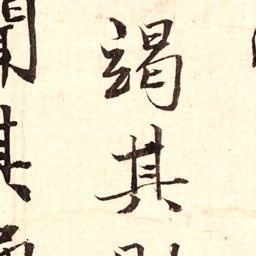 竭其
聞其